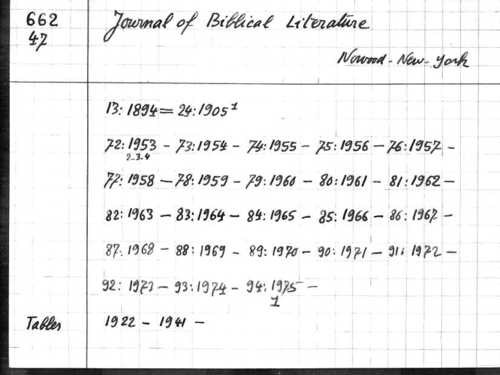 662 Journal of Biblical Literature
47
Nowood - New - York
13: 1894 = 24: 1905 1
72: 1953 - 73: 1954 - 74: 1955 - 75: 1956 - 76: 1957 -
2.3.4
77: 1958 - 78: 1959 - 79: 1960 - 80: 1961 - 81: 1962 -
82: 1963 - 83: 1964 - 84: 1965 - 85: 1966 - 86: 1967 -
87: 1968 - 88: 1969 - 89: 1970 - 90: 1971 - 91: 1972 -
92: 1973 - 93: 1974 - 94: 1975 -
1
Tables 1922 - 1941 -